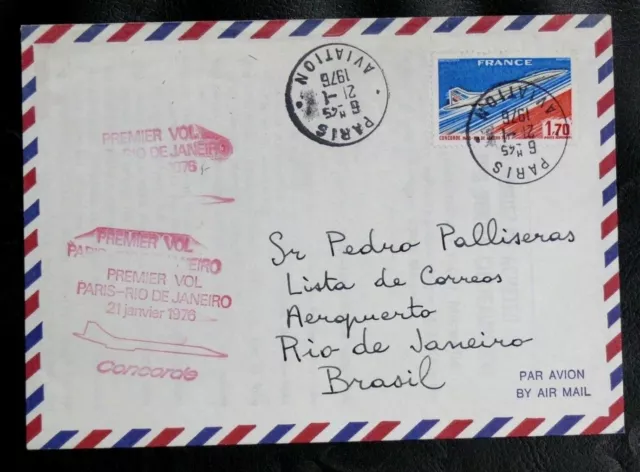 PREMIER VOL
RIO DE JANEIRO
1976
PREMIER VOL
PREMIER VOL
PARIS-RIO DE JANEIRO
21 janvier 1976
Concorde
PARIS
6 H 45
21-1
1976
AVIATION
FRANCE
1,70
PARIS
6 H 45
21-1
1976
AVIATION
Sr Pedro Palliseras
Lista de Correos
Aeropuerto
Rio de Janeiro
Brasil
PAR AVION
BY AIR MAIL